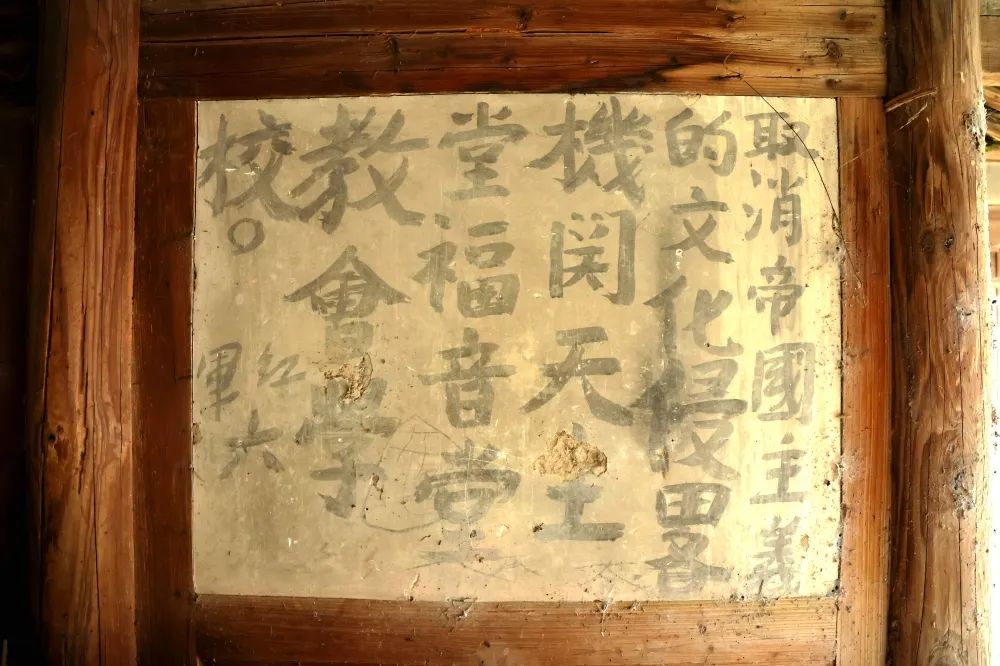 取消帝國主義
的文化侵畧
機関天主
堂福音堂
教會學
校○
紅六
軍